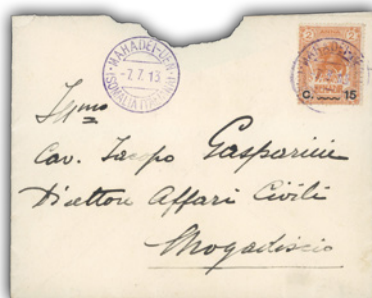 MAHADEI-UEN
-7. 7. 13
(SOMALIA ITALIANA)
2 2
MAHADEI-UEN
C. 15
Ill.mo
Cav. Jacopo Gasparini
Direttore Affari Civili
Mogadiscio